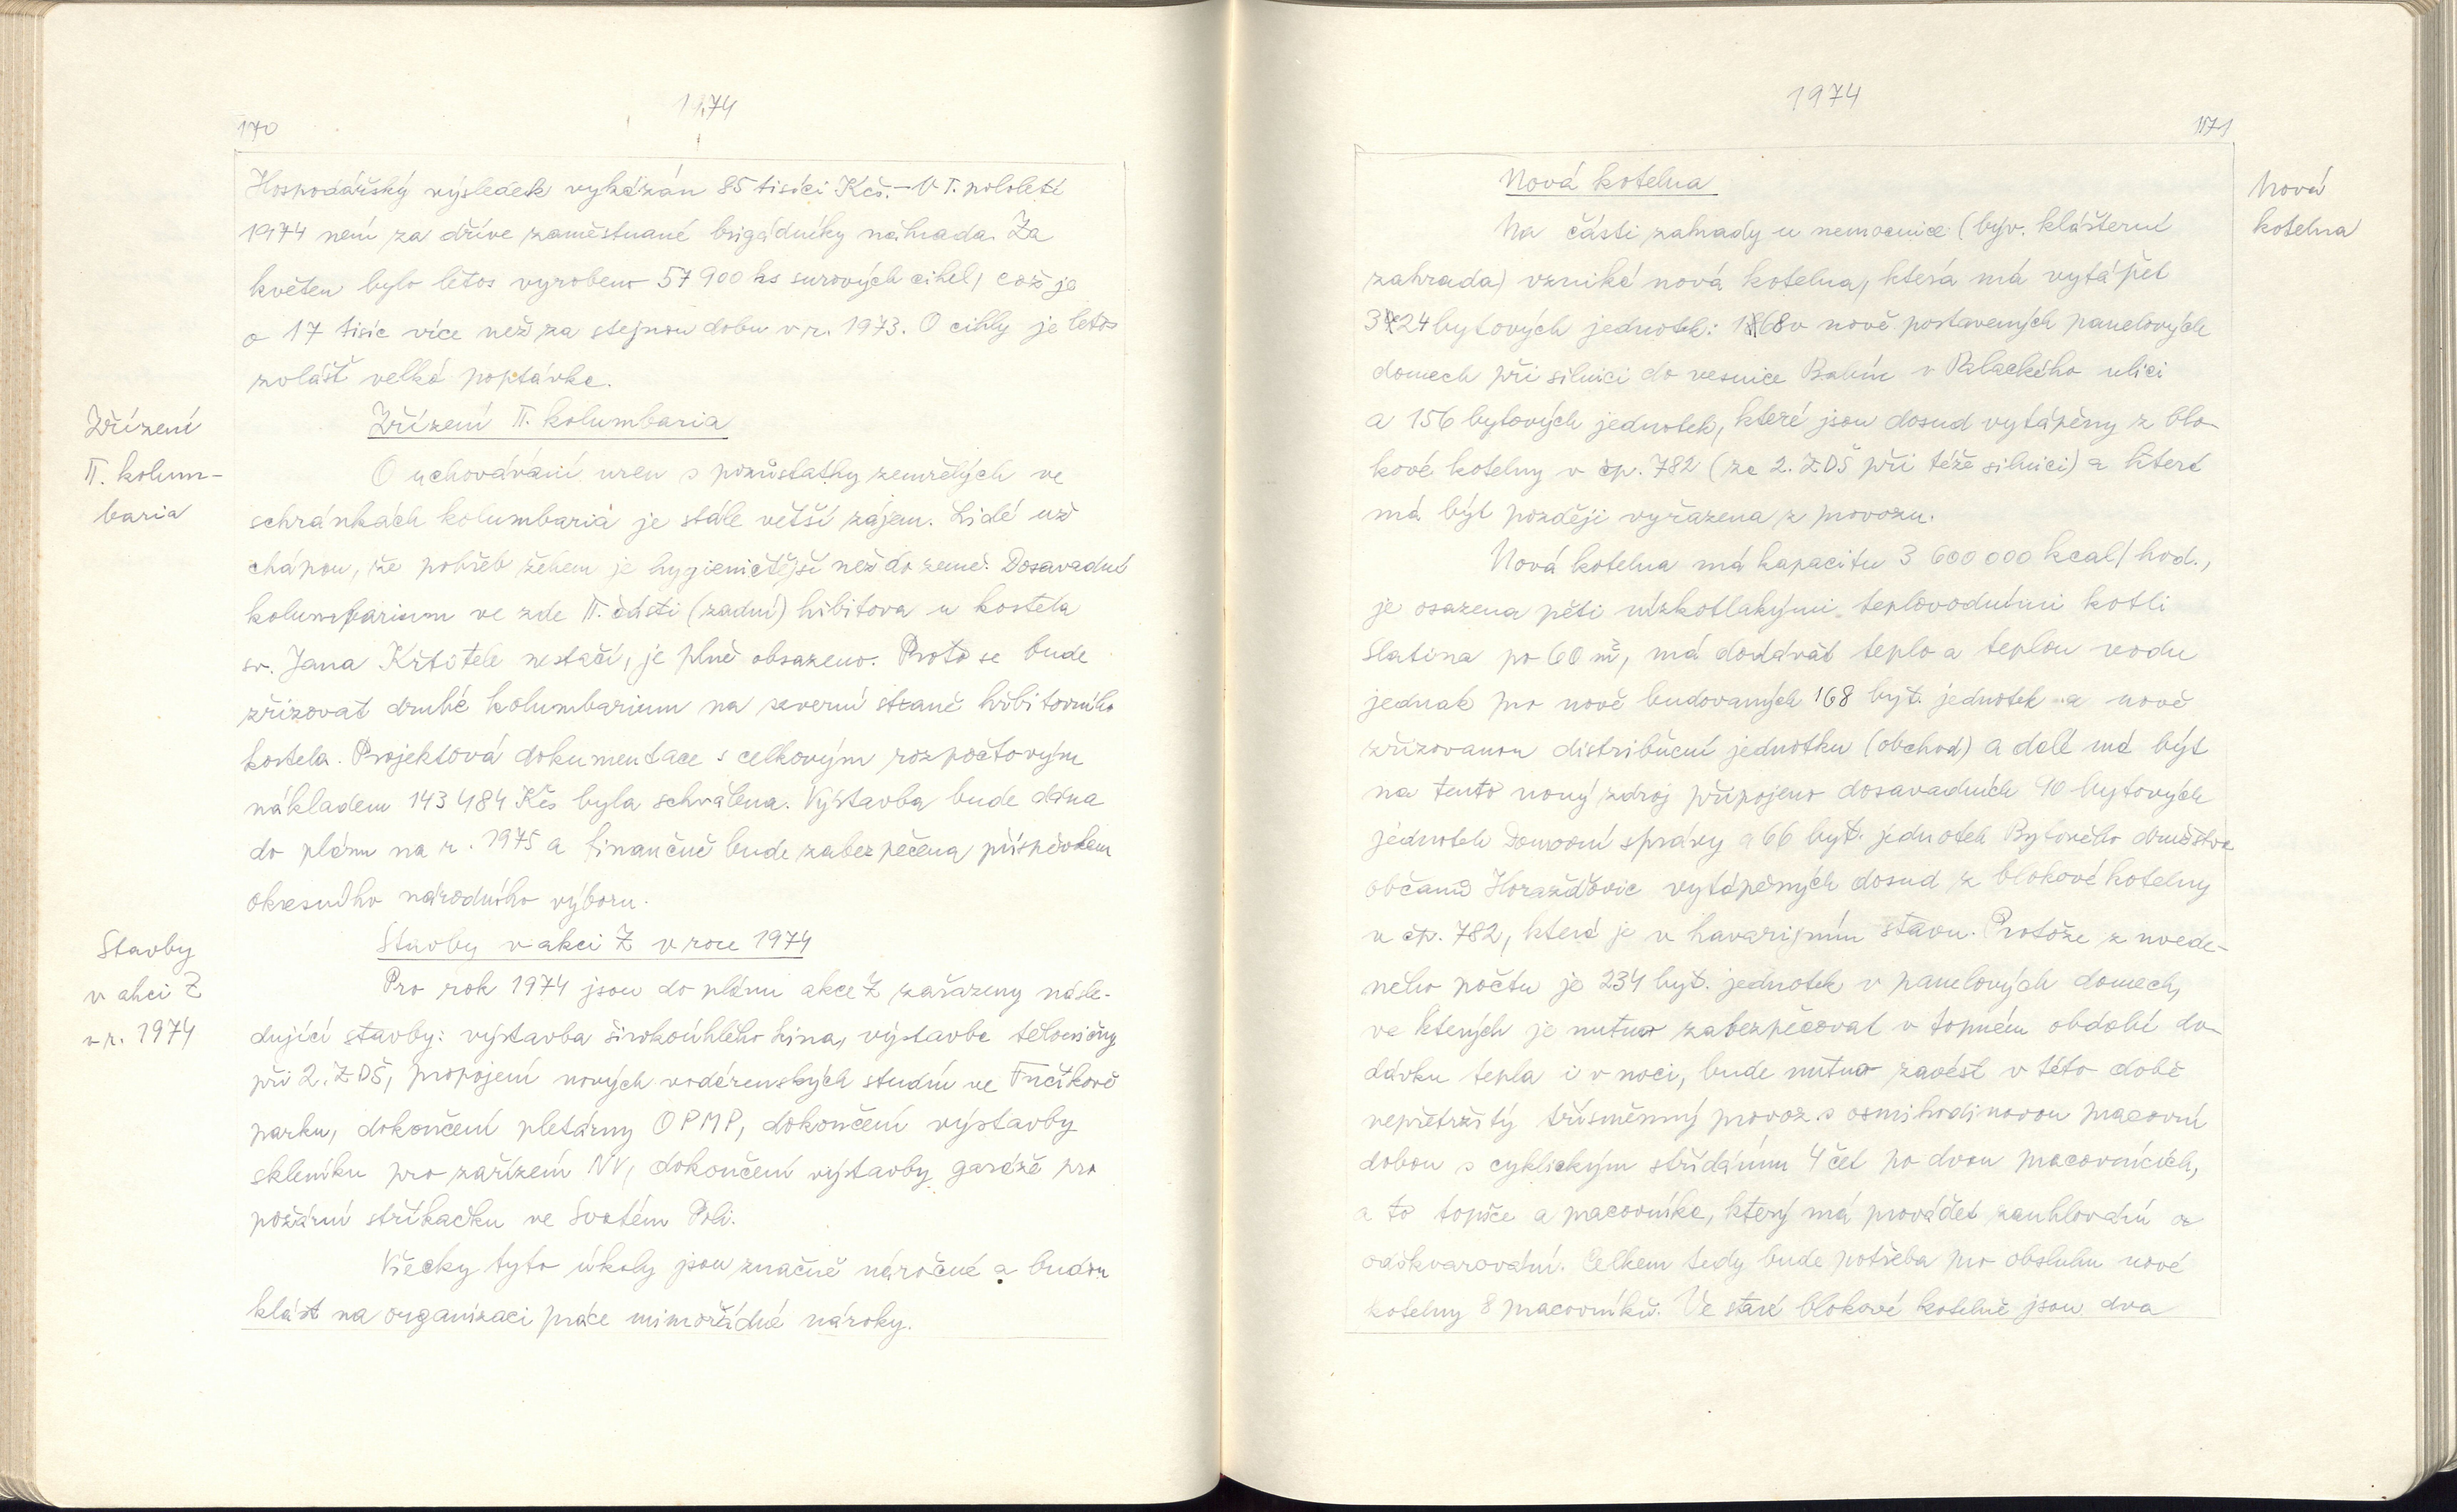 1974
170
Hospodářský výsledek vykázán 85 tisíci Kčs. – V I. pololetí
1974 není za dříve zaměstnané brigádníky náhrada. Za
květen bylo letos vyrobeno 57 900 ks surových cihel, což je
o 17 tisíc více než za stejnou dobu v r. 1973. O cihly je letos
zvlášť velká poptávka.
Zřízení
II. kolum-
baria
Zřízení II. kolumbaria
O uchovávání uren s pozůstatky zemřelých ve
schránkách kolumbaria je stále větší zájem. Lidé už
chápou, že pohřeb žehem je hygieničtější než do země. Dosavadní
kolumbarium ve zde II. části (zadní) hřbitova u kostela
sv. Jana Křtitele nestačí, je plně obsazeno. Proto se bude
zřizovat druhé kolumbarium na severní straně hřbitovního
kostela. Projektová dokumentace s celkovým rozpočtovým
nákladem 143 484 Kčs byla schválena. Výstavba bude dána
do plánu na r. 1975 a finančně bude zabezpečena příspěvkem
okresního národního výboru.
Stavby
v akci Z
v r. 1974
Stavby v akci Z v roce 1974
Pro rok 1974 jsou do plánu akce Z zařazeny násle-
dující stavby: výstavba širokoúhlého kina, výstavba tělocvičny
při 2. ZDŠ, propojení nových vodárenských studní ve Fučíkově
parku, dokončení pletárny OPMP, dokončení výstavby
skleníku pro zařízení NV, dokončení výstavby garáže pro
požární stříkačku ve Svatém Poli.
Všecky tyto úkoly jsou značně náročné a budou
klást na organizaci práce mimořádné nároky.
1974
171
Nová kotelna
Nová
kotelna
Na části zahrady u nemocnice (býv. klášterní
zahrada) vzniká nová kotelna, která má vytápět
324 bytových jednotek: 168 v nově postavených panelových
domech při silnici do vesnice Babín v Palackého ulici
a 156 bytových jednotek, které jsou dosud vytápěny z blo-
kové kotelny v čp. 782 (za 2. ZDŠ při téže silnici) a která
má být později vyřazena z provozu.
Nová kotelna má kapacitu 3 600 000 kcal/hod.,
je osazena pěti nízkotlakými teplovodními kotli
Slatina po 60 m², má dodávat teplo a teplou vodu
jednak pro nově budovaných 168 byt. jednotek a nově
zřizovanou distribuční jednotku (obchod) a dále má být
na tento nový zdroj připojeno dosavadních 90 bytových
jednotek Domovní správy a 66 byt. jednotek Bytového družstva
občanů Horažďovic vytápěných dosud z blokové kotelny
v čp. 782, která je v havarijním stavu. Protože z uvede-
ného počtu je 234 byt. jednotek v panelových domech,
ve kterých je nutno zabezpečovat v topném období do-
dávku tepla i v noci, bude nutno zavést v této době
nepřetržitý třísměnný provoz s osmihodinovou pracovní
dobou s cyklickým střídáním 4 čet po dvou pracovnících,
a to topiče a pracovníka, který má provádět zauhlování a
odškvarování. Celkem tedy bude potřeba pro obsluhu nové
kotelny 8 pracovníků. Ve staré blokové kotelně jsou dva